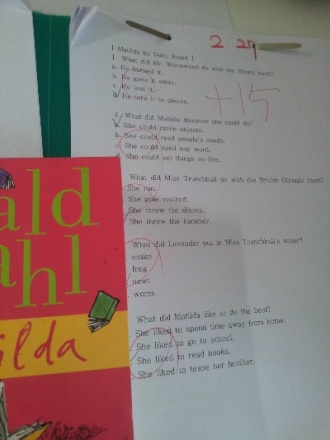 2 27
+15
[ Matilda by Dahl, Roald ]
1. What did Mr. Wormwood do with the library book?
a. He burned it.
b. He gave it away.
c. He lost it.
d. He tore it to pieces.
What did Matilda discover she could do?
a. She could move objects.
b. She could read people's minds.
She could spell any word.
d. She could set things on fire.
What did Miss Trunchbull do with the British Olympic team?
She ran.
She pole vaulted.
She threw the discus.
She threw the hammer.
What did Lavender put in Miss Trunchbull's water?
snake
frog
newt
worm
What did Matilda like to do the best?
She liked to spend time away from home.
She liked to go to school.
She liked to read books.
She liked to tease her brother.
ald
ahl
ilda